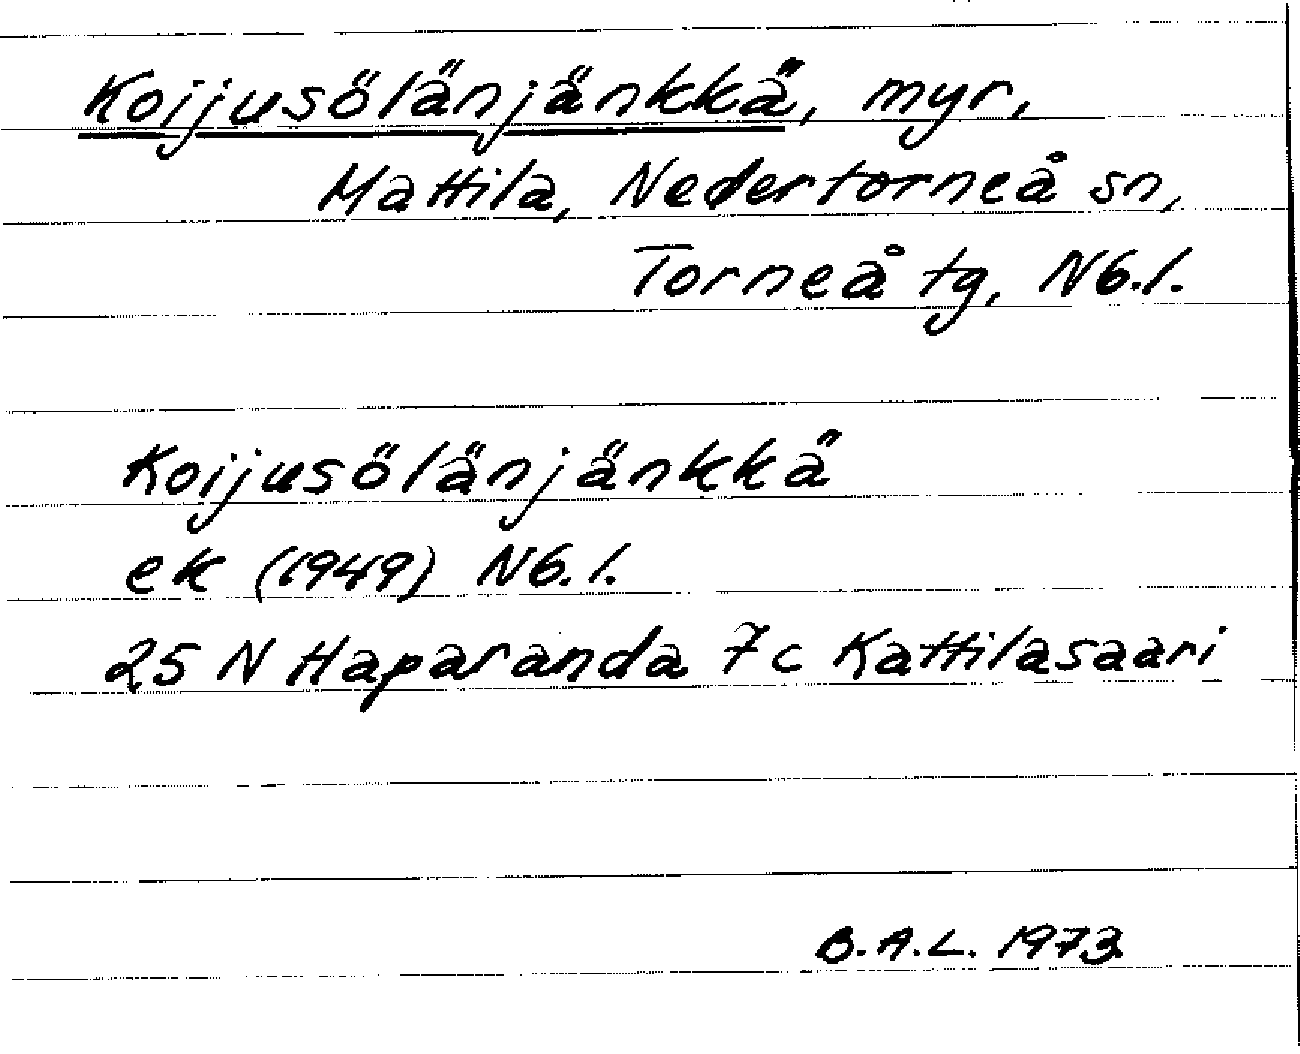 Koijusölänjänkkä, myr,
Mattila, Nedertorneå sn,
Torneå tg, N6.l.
Koijusölänjänkkä
ek (1949) N6.l.
25 N Haparanda 7c Kattilasaari
B.A.L. 1973